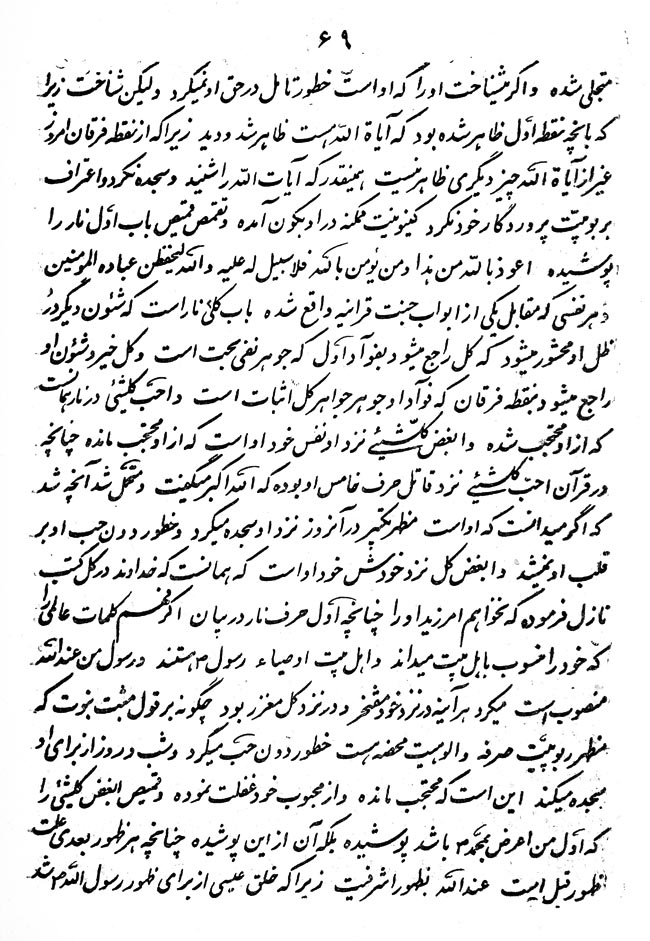 ۶۹
متجلی شده و اگر میشناخت او را که او است خطور تامل در حق او نمیکرد ولیکن شناخت زیرا
که بانچه نقطه اول ظاهر شده بود که آیاة الله هست ظاهر شد و دید زیرا که از نقطه فرقان امروز
غیر از آیاة الله چیز دیگری ظاهر نیست همینقدر که آیات الله را شنید و سجده نکرد و اعتراف
بربوبیت پروردگار خود نکرد کینونیت ممکنه در او بکون آمده و تقمص قمیص باب اول نار را
پوشیده اعوذ بالله من هذا و من یؤمن بالله فلا سبیل له علیه والله لیحفظن عباده المؤمنین
و هر نفسی که مقابل یکی از ابواب جنت قرانیه واقع شده باب کلی نار است که شئون دیگر در
ظل او محشور میشود که کل راجع میشود بفوآد اول که جوهر نفی بحت است و کل خیر و شئون او
راجع میشود بنقطه فرقان که فوآد او جوهر جواهر کل اثبات است و احب کلشیئی در نار همانست
که از او محتجب شده و ابغض کلشیئے نزد او نفس خود او است که از او محتجب مانده چنانچه
در قرآن احب کلشیئے نزد قاتل حرف خامس او بوده که الله اکبر میگفت و متحمل شد آنچه شد
که اگر میدانست که او است مظهر تکبیر در آنروز نزد او سجده میکرد و خطور دون حب او بر
قلب او نمیشد و ابغض کل نزد خودش خود او است که همانست که خداوند در کل کتب
نازل فرموده که نخواهم امرزید او را چنانچه اول حرف نار در بیان اگر فهم کلمات عالمی را
که خود را منسوب باهل بیت میداند و اهل بیت اوصیاء رسول ۳ هستند و رسول من عند الله
منصوب است میکرد هر آینه در نزد خود مفتخر و در نزد کل معزز بود چگونه بر قول مثبت نبوت که
مظهر ربوبیت صرفه و الوهیت محضه هست خطور دون حب میکرد و شب و روز از برای او
سجده میکند این است که محتجب مانده و از محبوب خود غفلت نموده و قمیص ابغض کلشیئی را
که اول من اعرض بمحمد ۳ باشد پوشیده بلکه آن از این پوشیده چنانچه هر ظهور بعدی علت
ظهور قبل است عند الله بظهور اشرفیت زیرا که خلق عیسی از برای ظهور رسول الله ۳ شد